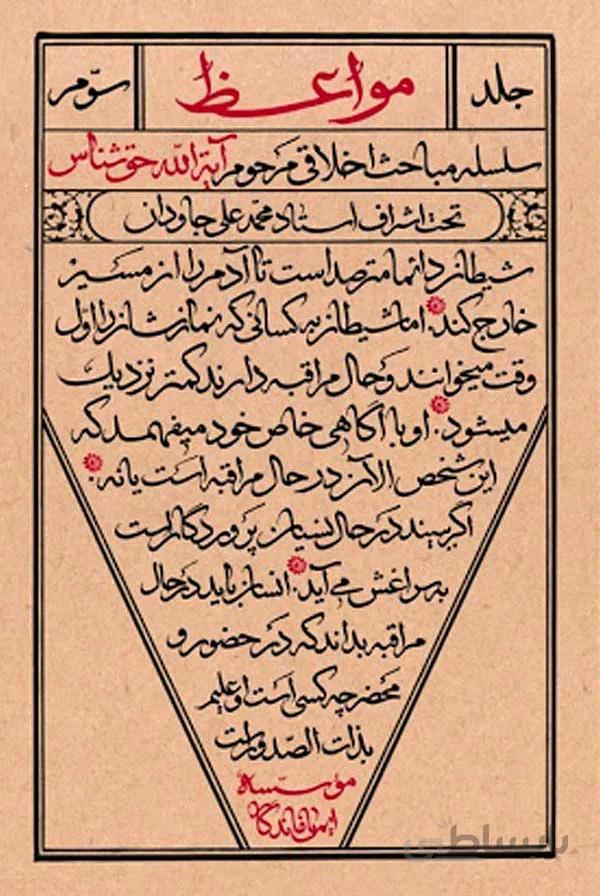 جلد
مواعظ
سوّم
سلسله مباحث اخلاقی مرحوم آیة الله حق شناس
تحت اشراف استاد محمد علی جاودان
شیطان دائما مترصد است تا آدم را از مسیر
خارج کند. اما شیطان به کسانی که نمازشان را اوّل
وقت میخوانند و حال مراقبه دارند کمتر نزدیک
میشود. او با آگاهی خاص خود میفهمد که
این شخص الآن در حال مراقبه است یا نه.
اگر ببیند در حال نسیان پروردگار است
به سراغش می آید. انسان باید در حال
مراقبه بداند که در حضور و
محضر چه کسی است او علیم
بذات الصدور است
مؤسّسه
ایمان ماندگار
بساطی